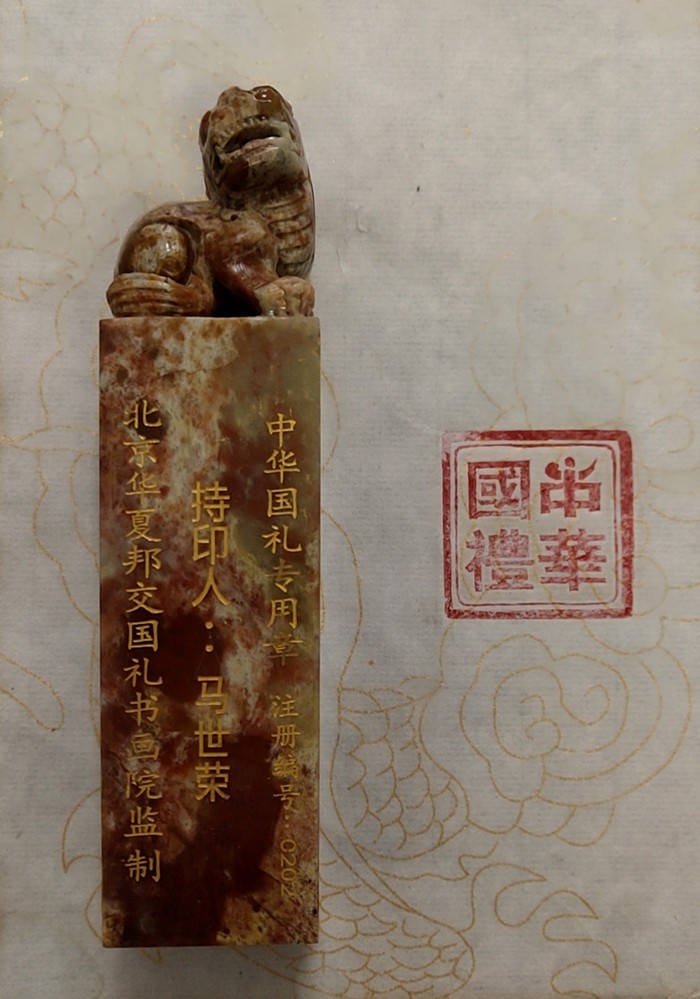 中华国礼专用章 注册编号：0202
持印人：马世荣
北京华夏邦交国礼书画院监制
中華
國禮